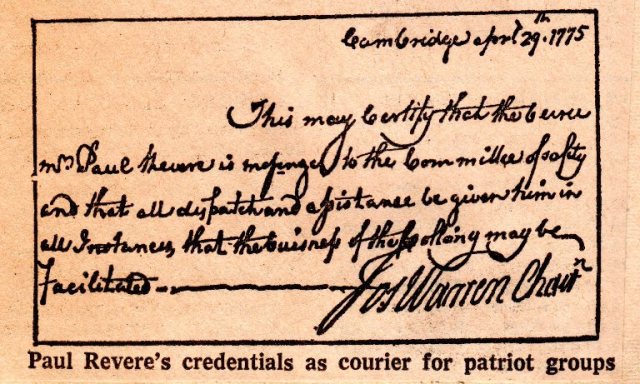 Cambridge Aprl 29th. 1775
This may Certify that the bearer
mr. Paul Revere is messenger to the Committee of safety
and that all dispatch and assistance be given him in
all Instances, that the buisness of the may be
facilitated
Jos Warren Chairn
Paul Revere's credentials as courier for patriot groups